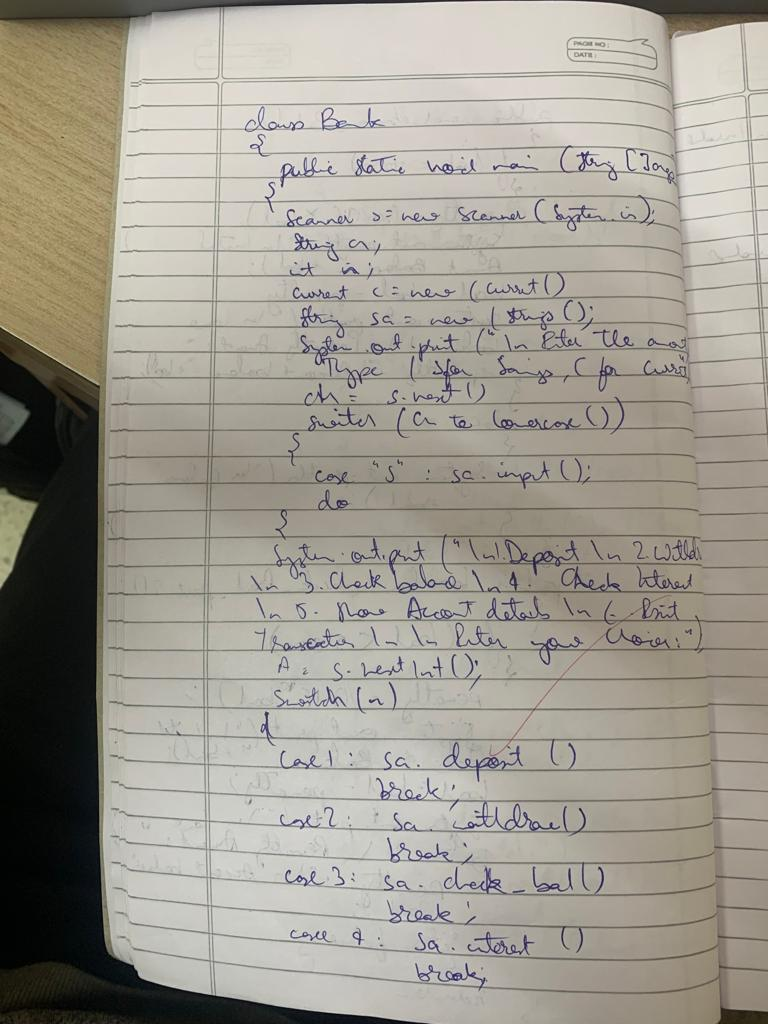 PAGE NO:
DATE:
class Bank
{
public static void main (String []args
{
Scanner s = new Scanner (System.in);
String ch;
int n;
Current c = new (Current()
String sa = new (Strings();
System.out.print ("\n Enter the
Type ( S for Savings, C for Curr
ch = s.next()
switch (ch to lowercase())
{
case "s" : sa.input();
do
{
System.out.print ("\n1.Deposit \n 2.Withd
\n 3. Check balance \n 4. Check Interest
\n 5. Show Account details \n 6. Print
Transaction \n \n Enter your Choice:")
n = s.nextInt();
Switch (n)
{
case 1 : sa. deposit ()
break;
case 2 : sa. withdraw()
break;
case 3: sa. check_bal()
break;
case 4 : sa.interest ()
break;